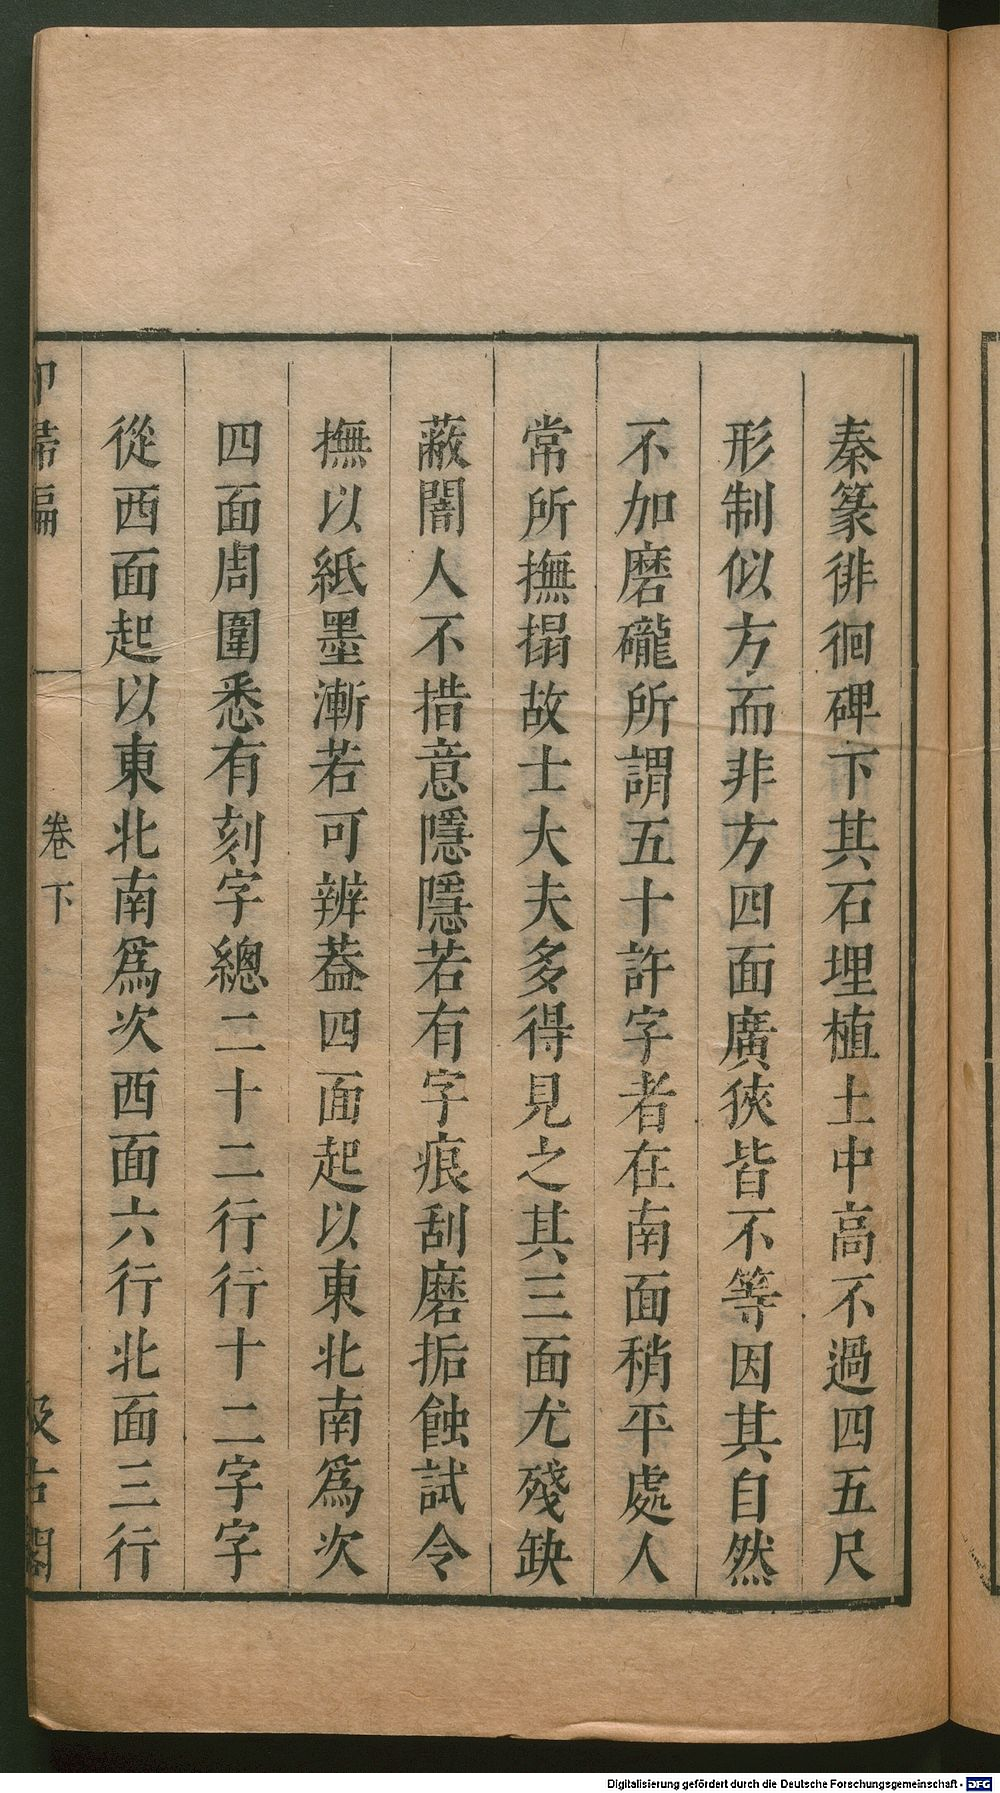 秦篆徘徊碑下其石埋植土中高不過四五尺
形制似方而非方四面廣狹皆不等因其自然
不加磨礲所謂五十許字者在南面稍平處人
常所撫搨故士大夫多得見之其三面尤殘缺
蔽闇人不措意隱隱若有字痕刮磨垢蝕試令
撫以紙墨漸若可辨葢四面起以東北南爲次
四面周圍悉有刻字總二十二行行十二字字
從西面起以東北南爲次西面六行北面三行
卷下
Digitalisierung gefördert durch die Deutsche Forschungsgemeinschaft - DFG